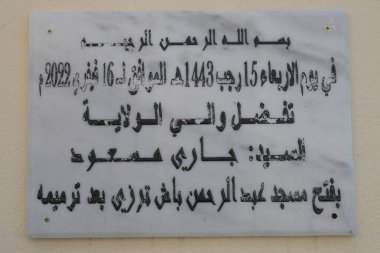 بسم الله الرحمن الرحيم
في يوم الاربعاء 15 رجب 1443هـ الموافق لـ 16 فيفري 2022م
تفضل والي الولاية
السيد: جاري مسعود
بفتح مسجد عبد الرحمن باش ترزي بعد ترميمه